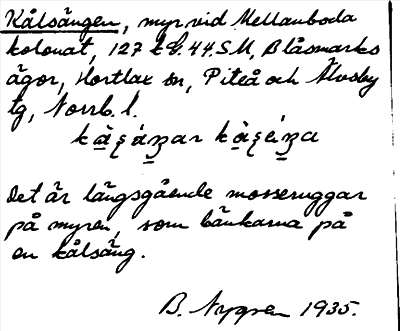 Kålsängen, myr vid Mellanboda
kolonat, 127 44 SM, Blåsmarks
ägor, Hortlax sn, Piteå och Älvsby
tg, Norrb. l.
Det är längsgående mosseruggar
på myren, som bänkarna på
en kålsäng.
B. Nygren 1935.